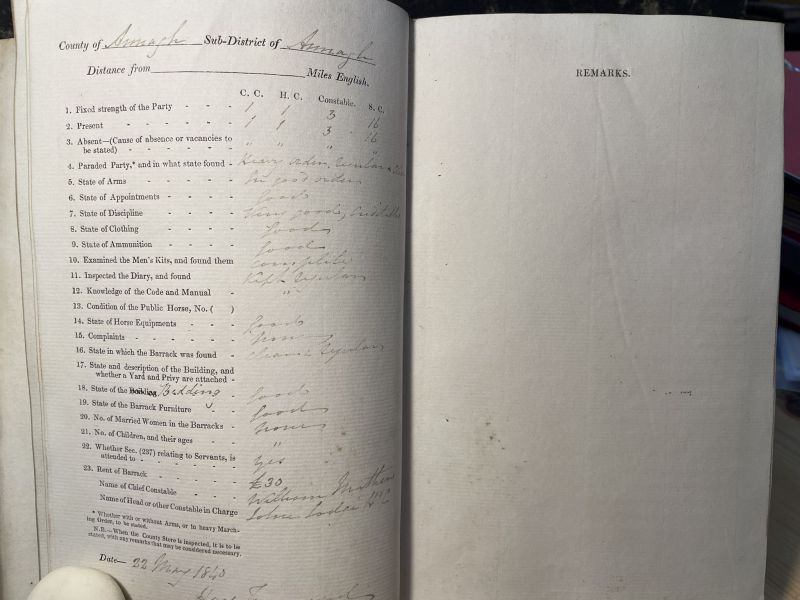 County of Armagh Sub-District of Armagh
Distance from Miles English.
C. C. H. C. Constable. S. C.
1. Fixed strength of the Party - - - 1 1 3 16
2. Present - - - - - 1 1 3 16
3. Absent—(Cause of absence or vacancies to
be stated) - - - - - " " " "
4. Paraded Party,* and in what state found - Heavy order,
5. State of Arms - - - - In good order
6. State of Appointments - - - good
7. State of Discipline - - - - Very good,
8. State of Clothing - - - - good
9. State of Ammunition - - - - good
10. Examined the Men's Kits, and found them complete
11. Inspected the Diary, and found - Kept regular
12. Knowledge of the Code and Manual - "
13. Condition of the Public Horse, No. ( )
14. State of Horse Equipments - - - good
15. Complaints - - - - - none
16. State in which the Barrack was found - clean & regular
17. State and description of the Building, and
whether a Yard and Privy are attached -
18. State of the Bedding - good
19. State of the Barrack Furniture - - good
20. No. of Married Women in the Barracks - none
21. No. of Children, and their ages - - "
22. Whether Sec. (237) relating to Servants, is
attended to - - - - - yes
23. Rent of Barrack - - - - £30
Name of Chief Constable - - William
Name of Head or other Constable in Charge John
* Whether with or without Arms, or in heavy March-
ing Order, to be stated.
N.B.—When the County Store is inspected, it is to be
stated, with any remarks that may be considered necessary.
Date— 22 May 1840
REMARKS.